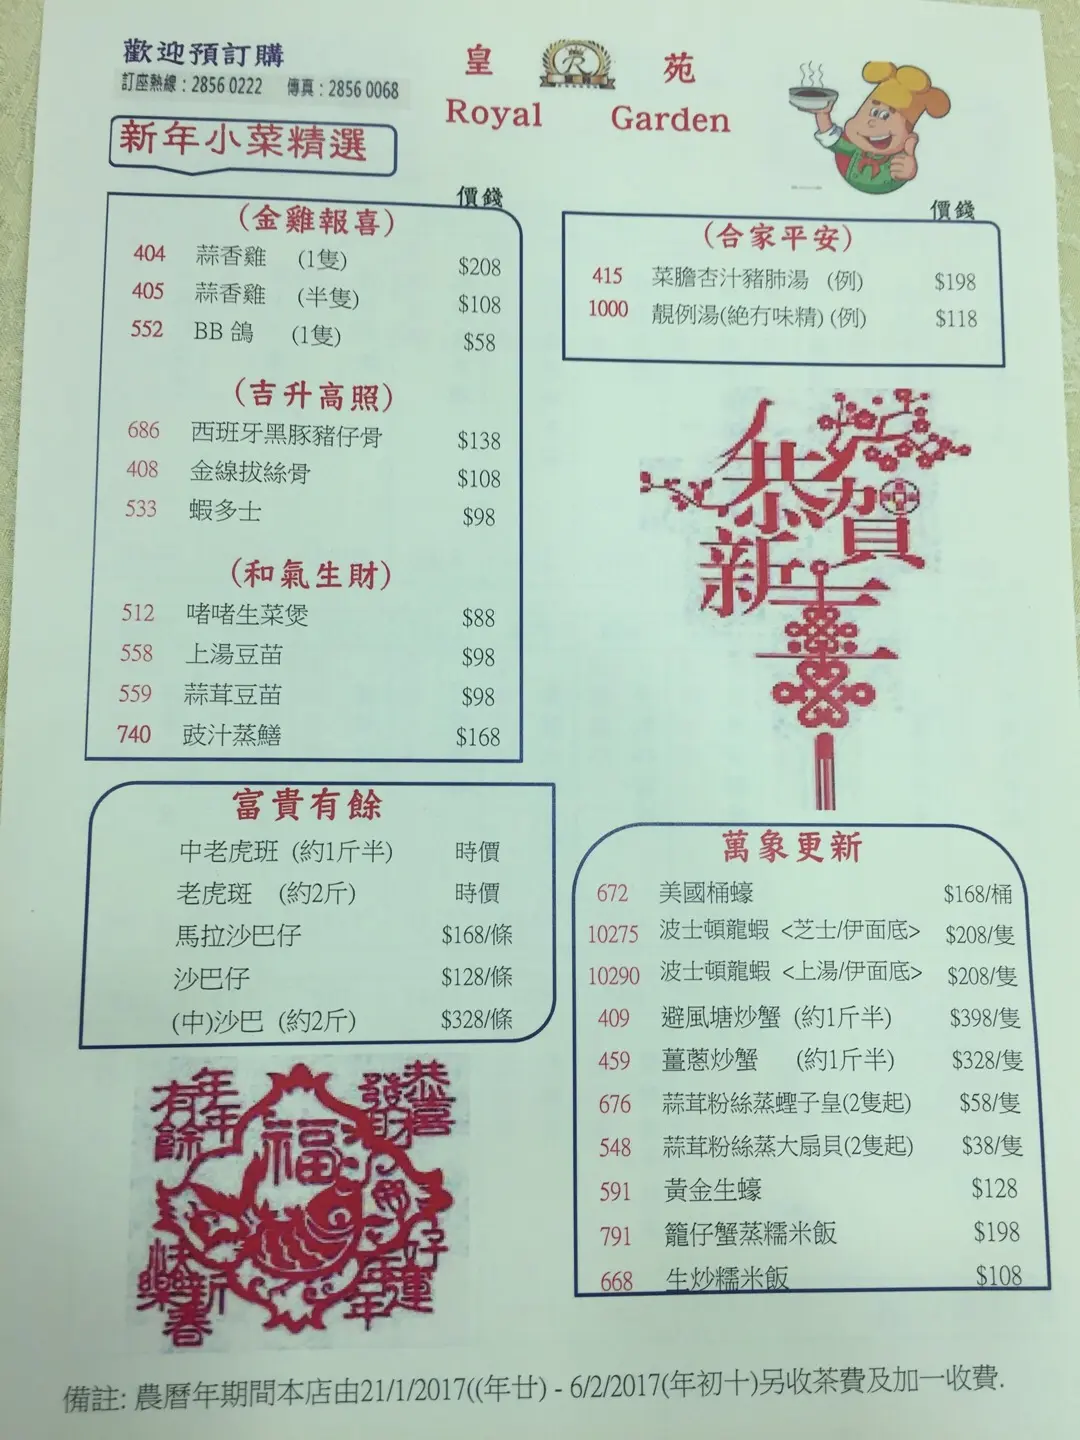 歡迎預訂購
訂座熱線：2856 0222 傳真：2856 0068
皇 苑
Royal Garden
新年小菜精選
價錢
(金雞報喜)
404 蒜香雞 (1隻) $208
405 蒜香雞 (半隻) $108
552 BB 鴿 (1隻) $58
(吉升高照)
686 西班牙黑豚豬仔骨 $138
408 金線拔絲骨 $108
533 蝦多士 $98
(和氣生財)
512 啫啫生菜煲 $88
558 上湯豆苗 $98
559 蒜茸豆苗 $98
740 豉汁蒸鱔 $168
價錢
(合家平安)
415 菜膽杏汁豬肺湯 (例) $198
1000 靚例湯(絕冇味精) (例) $118
恭賀
新喜
富貴有餘
中老虎班 (約1斤半) 時價
老虎斑 (約2斤) 時價
馬拉沙巴仔 $168/條
沙巴仔 $128/條
(中)沙巴 (約2斤) $328/條
萬象更新
672 美國桶蠔 $168/桶
10275 波士頓龍蝦 <芝士/伊面底> $208/隻
10290 波士頓龍蝦 <上湯/伊面底> $208/隻
409 避風塘炒蟹 (約1斤半) $398/隻
459 薑蔥炒蟹 (約1斤半) $328/隻
676 蒜茸粉絲蒸蟶子皇(2隻起) $58/隻
548 蒜茸粉絲蒸大扇貝(2隻起) $38/隻
591 黃金生蠔 $128
791 籠仔蟹蒸糯米飯 $198
668 生炒糯米飯 $108
年年有餘
恭喜發財
福
快樂新春
好運年年
備註: 農曆年期間本店由21/1/2017((年廿) - 6/2/2017(年初十)另收茶費及加一收費.